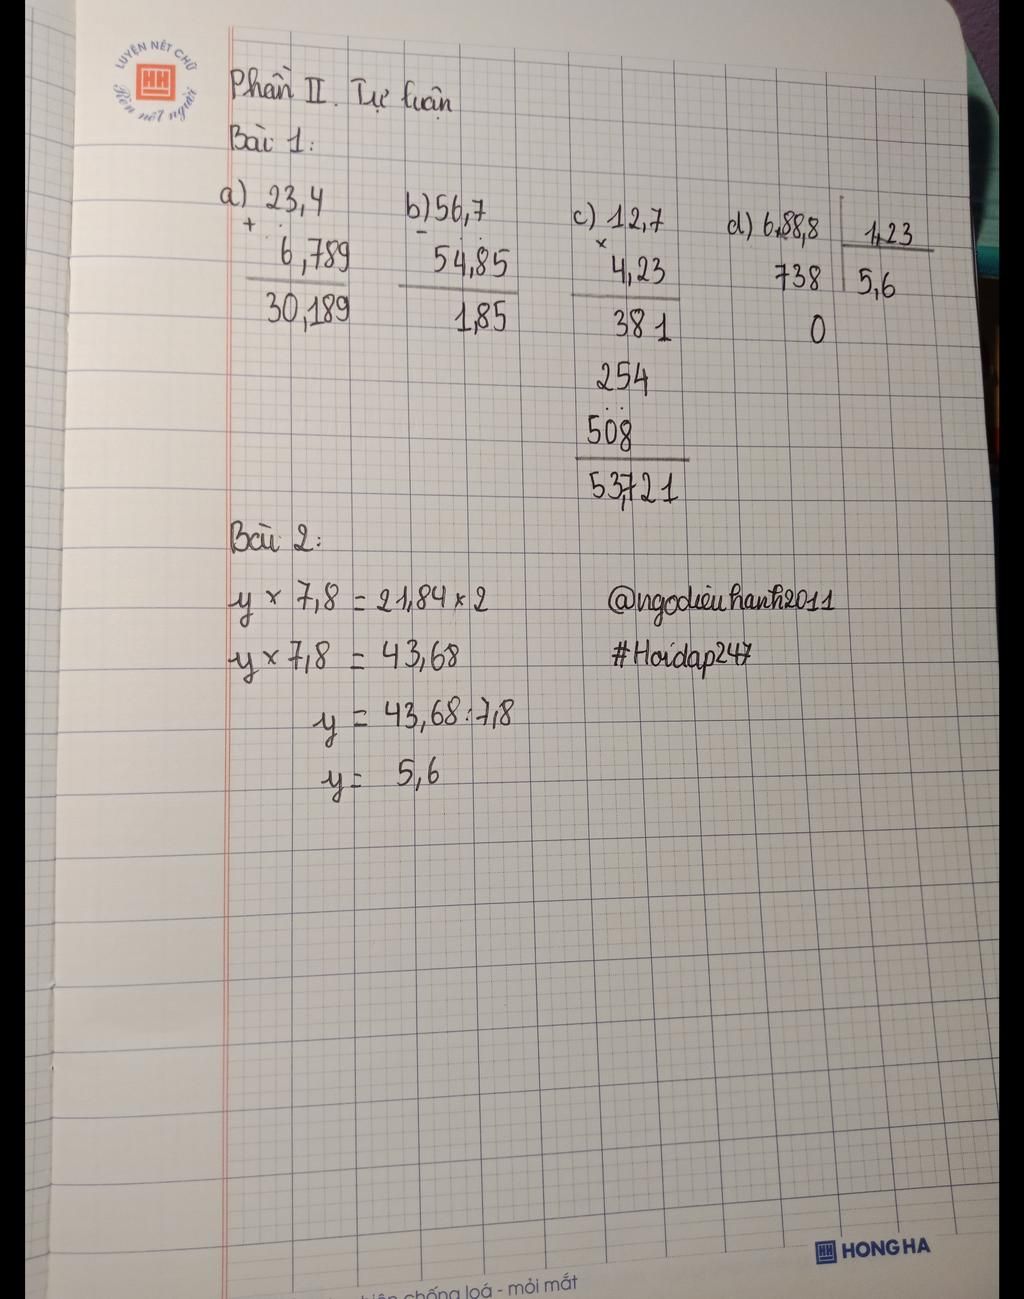 LUYỆN NÉT CHỮ
HH
Rèn nết người
Phần II. Tự luận
Bài 1:
a) 23,4
+
6,789
30,189
b) 56,7
-
54,85
1,85
c) 12,7
×
4,23
381
254
508
53,721
d) 6,88,8 1,23
738 5,6
0
Bài 2:
y × 7,8 = 21,84 × 2
y × 7,8 = 43,68
y = 43,68 : 7,8
y = 5,6
@ngodieuhanh2011
#Hoidap247
HH HONG HA
chống loá - mỏi mắt